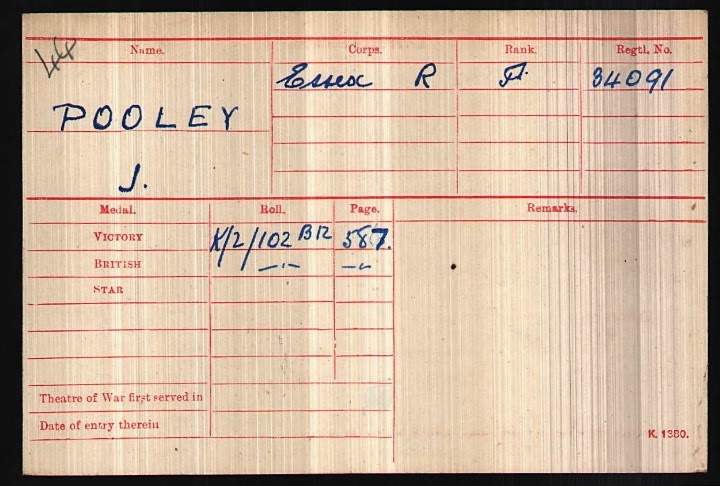 Name. Corps. Rank. Regtl. No.
Essex R 34091
POOLEY
J.
Medal. Roll. Page. Remarks.
VICTORY K/2/102 B12 587.
BRITISH —"— —"—
STAR
Theatre of War first served in
Date of entry therein
K. 1380.